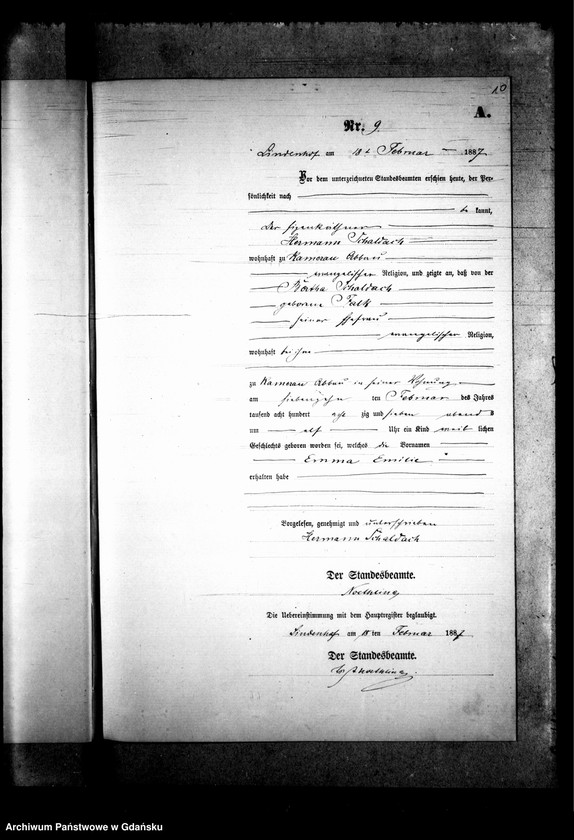 10
A.
Nr. 9.
Lindenhof am 18ten Februar 1887
Vor dem unterzeichneten Standesbeamten erschien heute, der Per-
sönlichkeit nach
be kannt,
der Eigenkäthner
Hermann Schaldach
wohnhaft zu Kamerau Abbau
evangelischer Religion, und zeigte an, daß von der
Schaldach
geborene Falk
seiner Ehefrau
evangelischer Religion,
wohnhaft bei ihm
zu Kamerau Abbau in seiner Wohnung
am siebenzehn ten Februar des Jahres
tausend acht hundert acht zig und sieben abend s
um elf Uhr ein Kind weib lichen
Geschlechts geboren worden sei, welches die Vornamen
Emma Emilie
erhalten habe
Vorgelesen, genehmigt und unterschrieben
Hermann Schaldach
Der Standesbeamte.
Noethling
Die Uebereinstimmung mit dem Hauptregister beglaubigt.
Lindenhof am 18 ten Februar 1887
Der Standesbeamte.
Noethling
Archiwum Państwowe w Gdańsku